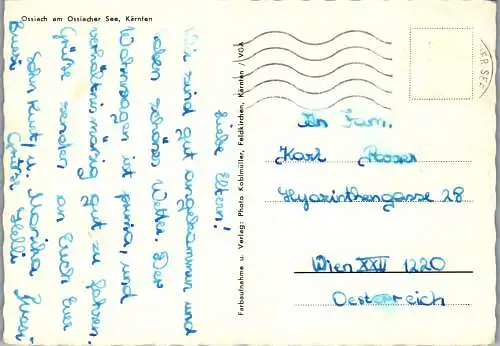 Ossiach am Ossiacher See, Kärnten
Liebe Eltern!
Wir sind gut angekommen und
haben schönes Wetter. Der
Wohnwagen ist prima, und
verhältnismäßig gut zu fahren.
Grüße senden an Euch Euer
Sohn Kurt u. Marika
Grüße Helli
Bussi
Bussi
Farbaufnahme u. Verlag: Photo Kohlmüller, Feldkirchen, Kärnten / VGA
ER SEE
An Fam.
Karl
Hyazinthengasse 28
Wien XXII 1220
Oesterreich